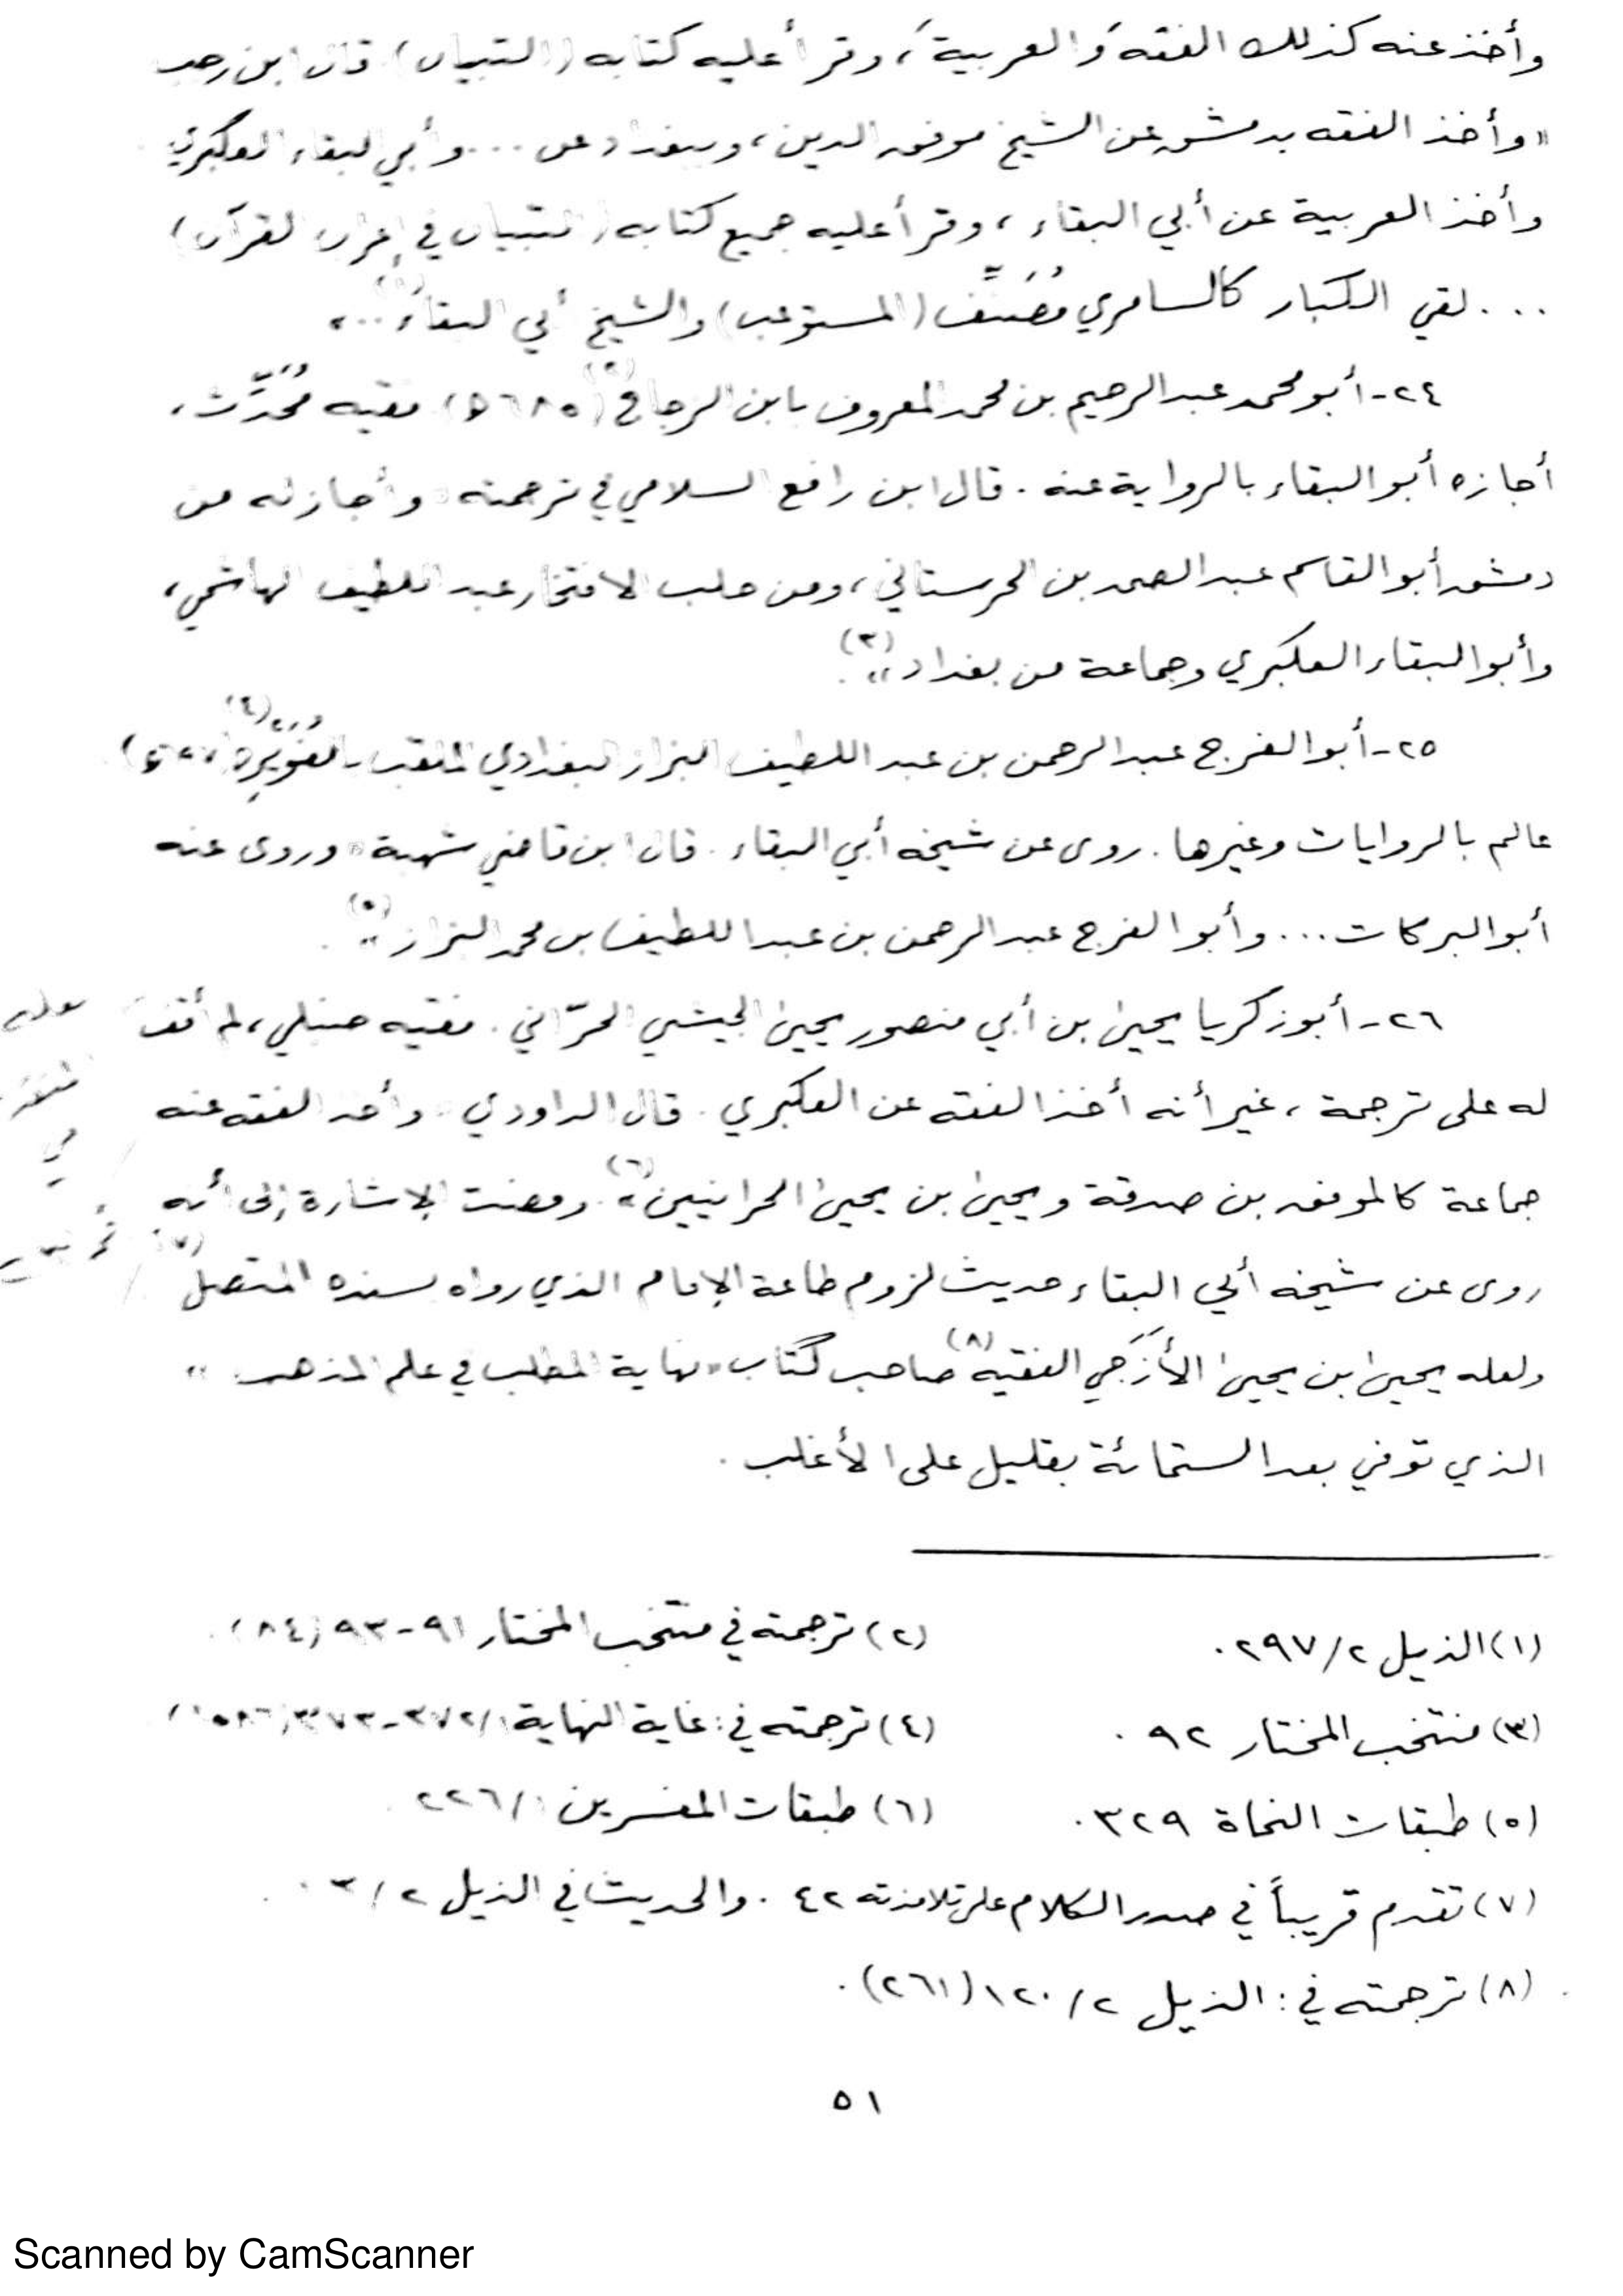 وأخذ عنه كذلك الفقه والعربية، وقرأ عليه كتابه (التبيان) قال ابن رجب
"وأخذ الفقه بدمشق عن الشيخ موفق الدين، وببغداد عن ... وأبي البقاء العكبري
وأخذ العربية عن أبي البقاء، وقرأ عليه جميع كتابه (التبيان في إعراب القرآن)
... لقي الكبار كالسامري مُصَنِّف (المستوعب) والشيخ أبي البقاء ..."(١)
٢٤- أبو محمد عبد الرحيم بن محمد المعروف بابن الزجاج(٢) (٦٨٥ه) فقيه مُحَدِّث،
أجازه أبو البقاء بالرواية عنه. قال ابن رافع السلامي في ترجمته "وأجاز له من
دمشق أبو القاسم عبد الصمد بن الحرستاني، ومن حلب الافتخار عبد اللطيف الهاشمي،
وأبو البقاء العكبري وجماعة من بغداد"(٣).
٢٥- أبو الفرج عبد الرحمن بن عبد اللطيف البزار البغدادي الملقب بالفُوَيْرِه(٤)
عالم بالروايات وغيرها. روى عن شيخه أبي البقاء. قال ابن قاضي شهبة "وروى عنه
أبو البركات ... وأبو الفرج عبد الرحمن بن عبد اللطيف بن محمد البزار"(٥).
٢٦- أبو زكريا يحيى بن أبي منصور يحيى الجيشي الحرّاني. فقيه حنبلي، لم أقف
له على ترجمة، غير أنه أخذ الفقه عن العكبري. قال الداودي "وأخذ الفقه عنه
جماعة كالموفق بن صدقة ويحيى بن يحيى الحرانيين"(٦). ومضت الإشارة إلى أنه
روى عن شيخه أبي البقاء حديث لزوم طاعة الإمام الذي رواه بسنده المتصل(٧)
ولعله يحيى بن يحيى الأَزَجي الفقيه(٨) صاحب كتاب "نهاية المطلب في علم المذهب"
الذي توفي بعد الستمائة بقليل على الأغلب.
(١) الذيل ٢/٢٩٧.
(٢) ترجمته في منتخب المختار ٩١-٩٣ (٨٤).
(٣) منتخب المختار ٩٢.
(٤) ترجمته في: غاية النهاية ١/٣٧٢-٣٧٣ (١٥٨٦)
(٥) طبقات النحاة ٣٢٩.
(٦) طبقات المفسرين ١/٢٢٦
(٧) تقدم قريباً في صدر الكلام على تلامذته ٤٢. والحديث في الذيل ٢/
(٨) ترجمته في: الذيل ٢/١٢٠ (٢٦١).
٥١
Scanned by CamScanner